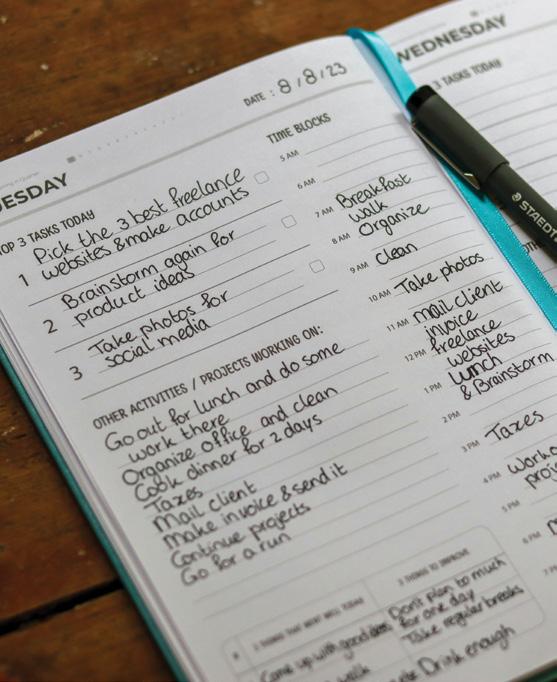 WEDNESDAY
3 TASKS TODAY
STAEDT
DATE : 8/8/23
UESDAY
TOP 3 TASKS TODAY
1 Pick the 3 best freelance
websites & make accounts
2 Brainstorm again for
product ideas
3 Take photos for
social media
OTHER ACTIVITIES / PROJECTS WORKING ON:
Go out for lunch and do some
work there
Organize office and clean
Cook dinner for 2 days
Taxes
Mail client
Make invoice & send it
Continue projects
Go for a run
TIME BLOCKS
5 AM
6 AM
7 AM Breakfast
walk
8 AM Organize
9 AM Clean
10 AM Take photos
11 AM mail client
invoice
12 PM freelance
websites
1 PM Lunch
& Brainstorm
2 PM
3 PM Taxes
4 PM
5 PM
6 PM
7 PM
3 THINGS THAT WENT WELL TODAY
Came up with good ideas
walk
3 THINGS TO IMPROVE
Don't plan to much
for one day
Take regular breaks
Drink enough